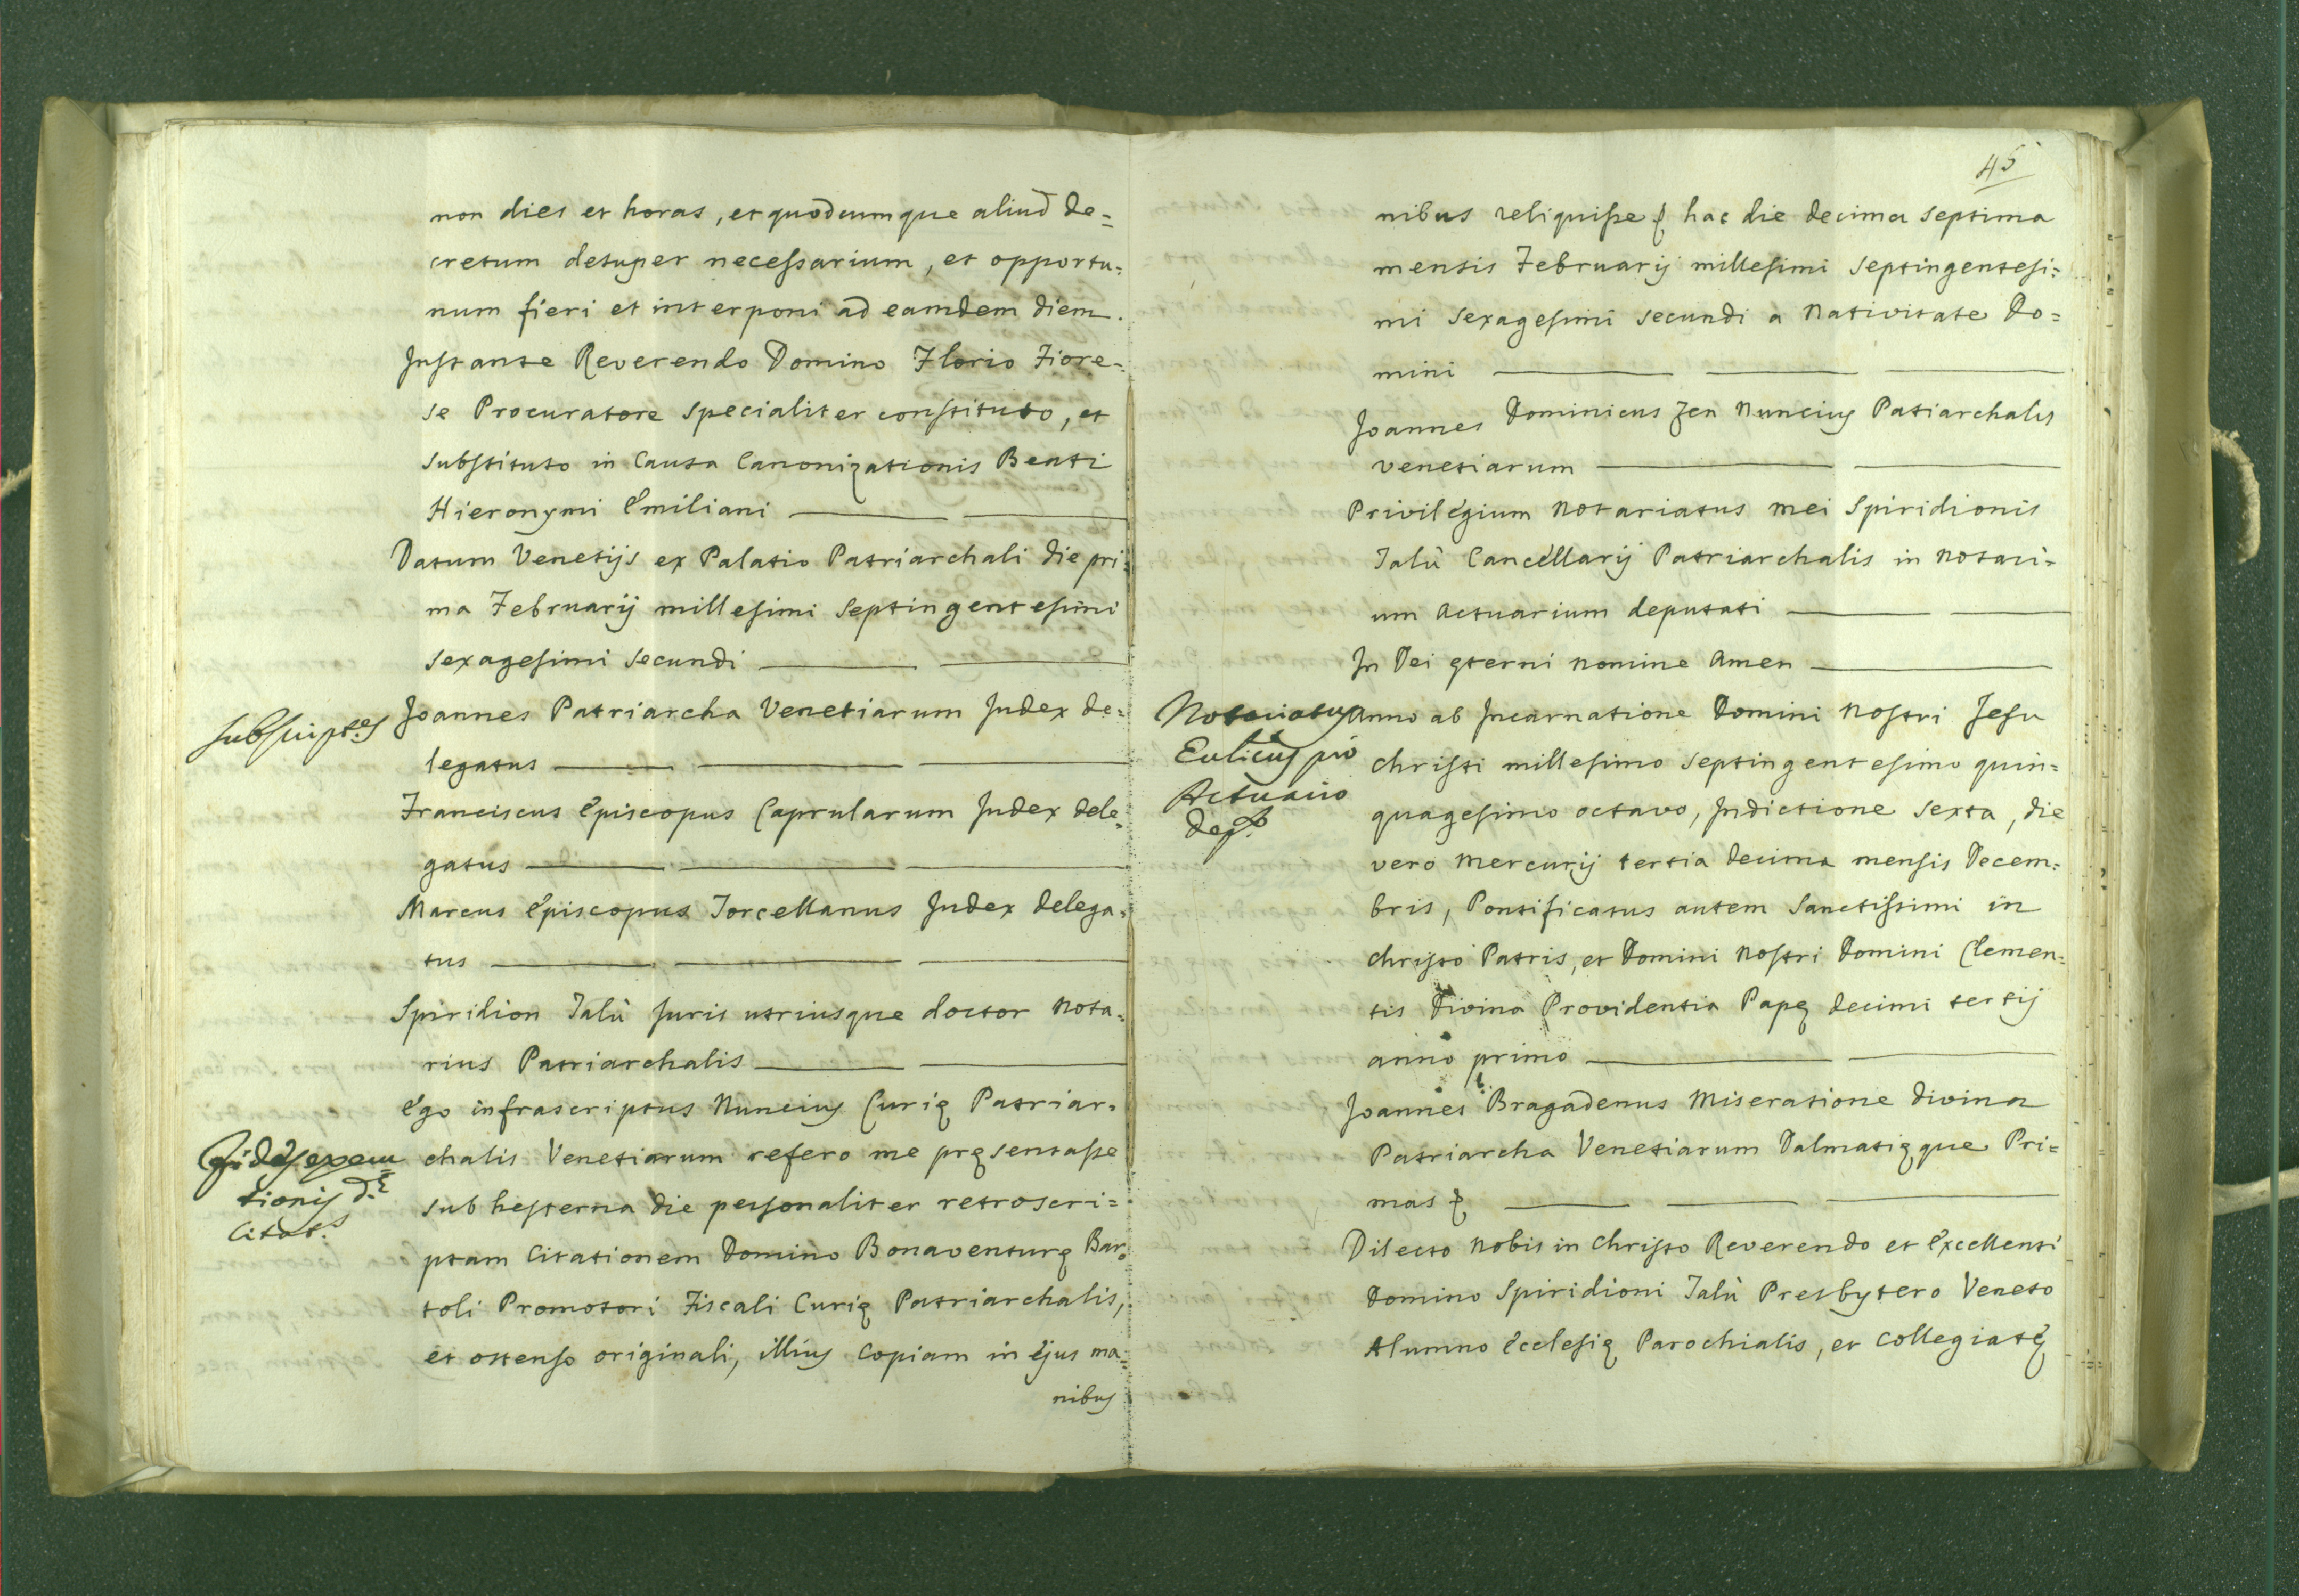 non dies et horas, et quodcumque aliud de=
cretum desuper necessarium, et opportu=
num fieri et interponi ad eamdem diem.
Instante Reverendo Domino Florio Fiore=
se Procuratore specialiter constituto, et
substituto in Causa Canonizationis Beati
Hieronymi Emiliani
Datum Venetijs ex Palatio Patriarchali die pri=
ma Februarij millesimi septingentesimi
sexagesimi secundi
Joannes Patriarcha Venetiarum Judex de=
legatus
Franciscus Episcopus Caprularum Judex dele=
gatus
Marcus Episcopus Torcellanus Judex delega=
tus
Spiridion Talù Juris utriusque doctor Nota=
rius Patriarchalis
Ego infrascriptus Nuncius Curię Patriar=
chalis Venetiarum refero me pręsentasse
sub hesterna die personaliter retroscri=
ptam Citationem Domino Bonaventurę Bar=
toli Promotori Fiscali Curię Patriarchalis,
et ostenso originali, illius Copiam in ejus ma=
nibus
subscript.es
Fides execu=
tionis d.ę
Citat.s
45
nibus reliquisse hac die decima septima
mensis Februarij millesimi septingentesi=
mi sexagesimi secundi a Nativitate Do=
mini
Joannes Dominicus Zen Nuncius Patiarchalis
Venetiarum
Privilegium Notariatus mei Spiridionis
Talù Cancellarij Patriarchalis in Notari=
um Actuarium deputati
In Dei ęterni nomine Amen
Notariatus
pro
Actuario
dep.to
Anno ab Incarnatione Domini Nostri Jesu
Christi millesimo septingentesimo quin=
quagesimo octavo, Indictione sexta, die
vero Mercurij tertia decima mensis Decem=
bris, Pontificatus autem Sanctissimi in
Christo Patris, et Domini Nostri Domini Clemen=
tis Divina Providentia Papę decimi tertij
anno primo
Joannes Bragadenus Miseratione divina
Patriarcha Venetiarum Dalmatięque Pri=
mas
Dilecto Nobis in Christo Reverendo et Excellenti
Domino Spiridioni Talù Presbytero Veneto
Alumno Ecclesię Parochialis, et Collegiatę